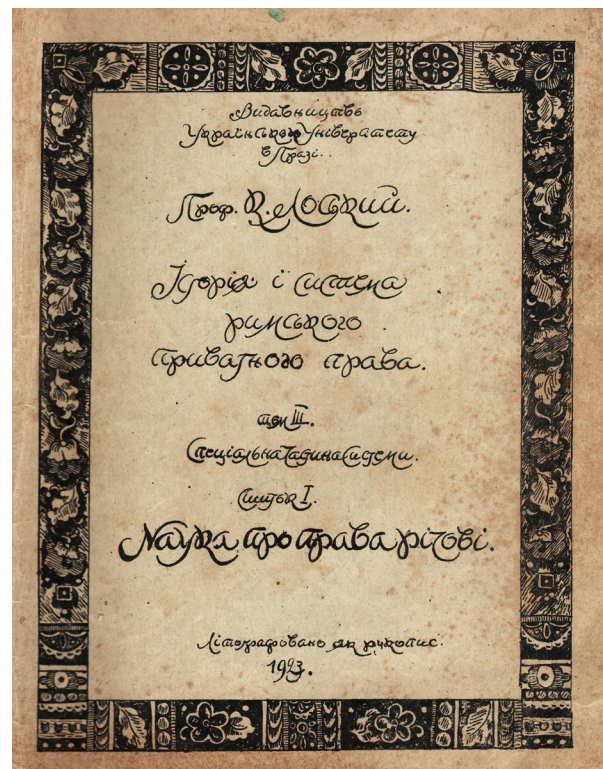 Видавництво
Українського Університету
в Празі.
Проф. К. Лоський.
Історія і система
римського
приватного права.
том III.
Спеціальна Частина Системи.
Сшиток I.
Наука про права річові.
Літографовано як рукопис.
1923.